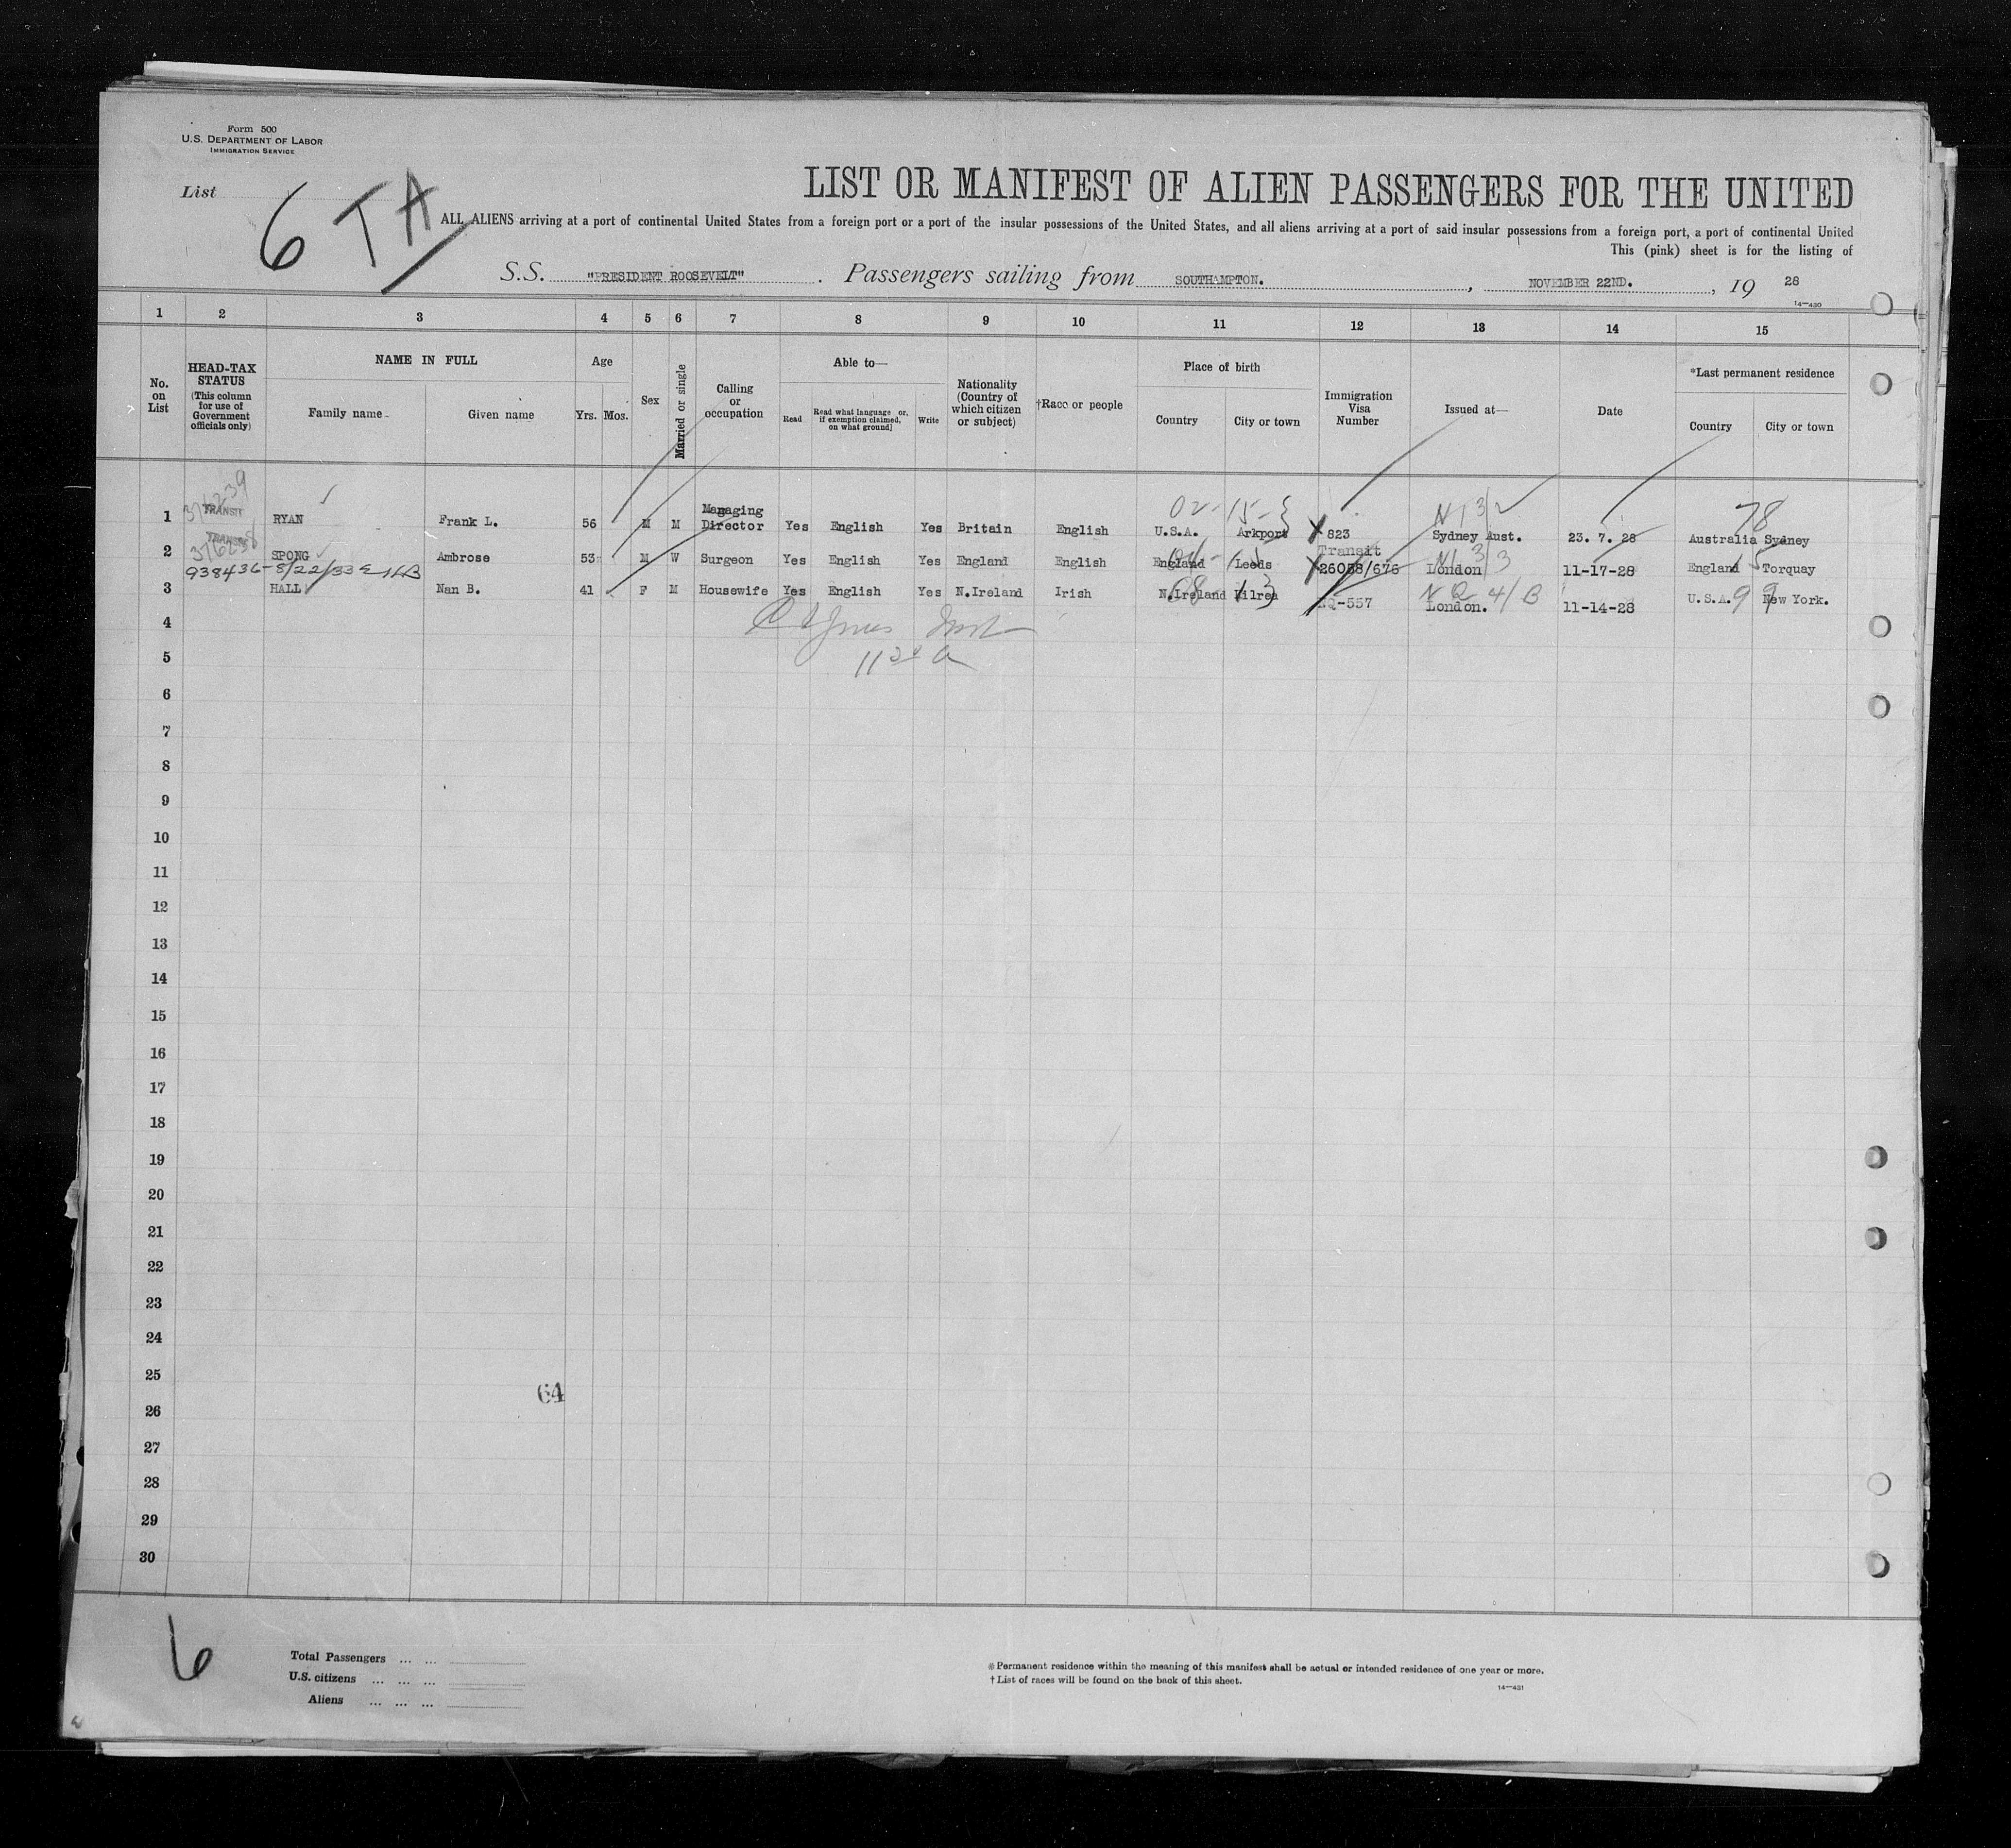 Form 500
U.S. DEPARTMENT OF LABOR
IMMIGRATION SERVICE
List
6 TA
LIST OR MANIFEST OF ALIEN PASSENGERS FOR THE UNITED
ALL ALIENS arriving at a port of continental United States from a foreign port or a port of the insular possessions of the United States, and all aliens arriving at a port of said insular possessions from a foreign port, a port of continental United
This (pink) sheet is for the listing of
S.S. "PRESIDENT ROOSEVELT". Passengers sailing from SOUTHAMPTON., NOVEMBER 22ND., 19 28
14-430
1 2 3 4 5 6 7 8 9 10 11 12 13 14 15
No. on List
HEAD-TAX STATUS (This column for use of Government officials only)
NAME IN FULL
Family name
Given name
Age
Yrs. Mos.
Sex
Married or single
Calling or occupation
Able to—
Read
Read what language or, if exemption claimed, on what ground]
Write
Nationality (Country of which citizen or subject)
†Race or people
Place of birth
Country
City or town
Immigration Visa Number
Issued at—
Date
*Last permanent residence
Country
City or town
376239
02-15-3 N132 78
1 TRANSIT RYAN Frank L. 56 M M Managing Director Yes English Yes Britain English U.S.A. Arkport 823 Sydney Aust. 23. 7. 28 Australia Sydney
376238
2 TRANSIT SPONG Ambrose 53 M W Surgeon Yes English Yes England English England Leeds Transit 26058/676 London 11-17-28 England Torquay
938436-8/22/33
3 HALL Nan B. 41 F M Housewife Yes English Yes N.Ireland Irish N.Ireland Kilrea NQ-557 London. 11-14-28 U.S.A. New York.
NQ 4/B 99
4
5
6
7
8
9
10
11
12
13
14
15
16
17
18
19
20
21
22
23
24
25
64
26
27
28
29
30
6
Total Passengers ... ...
U.S. citizens ... ... ...
Aliens ... ... ...
*Permanent residence within the meaning of this manifest shall be actual or intended residence of one year or more.
†List of races will be found on the back of this sheet.
14-431